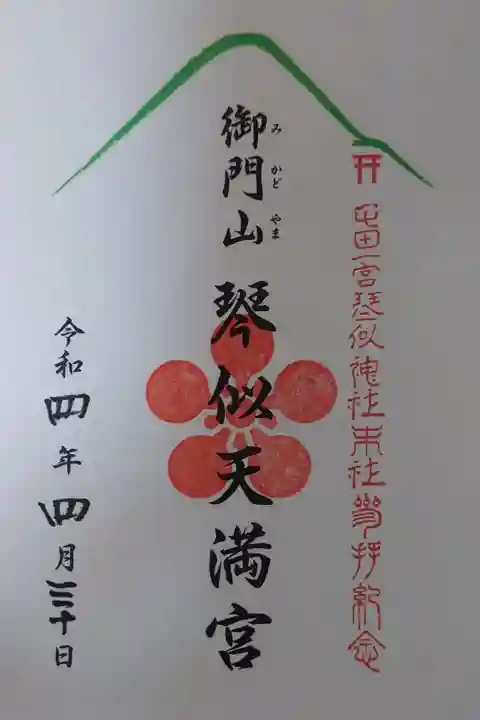 屯田一宮琴似神社末社参拝記念
御門山 琴似天満宮
みかどやま
令和四年四月三十日